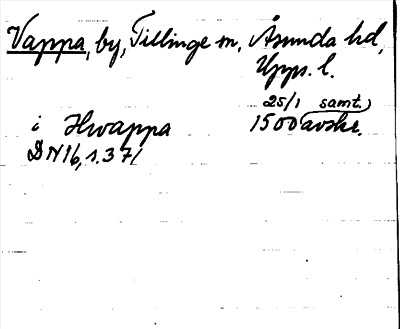 Vappa, by, Tillinge sn, Åsunda hd,
Upps. l.
25/1 samt.)
i Hwappa 1500 avskr.
DN 16, s. 371